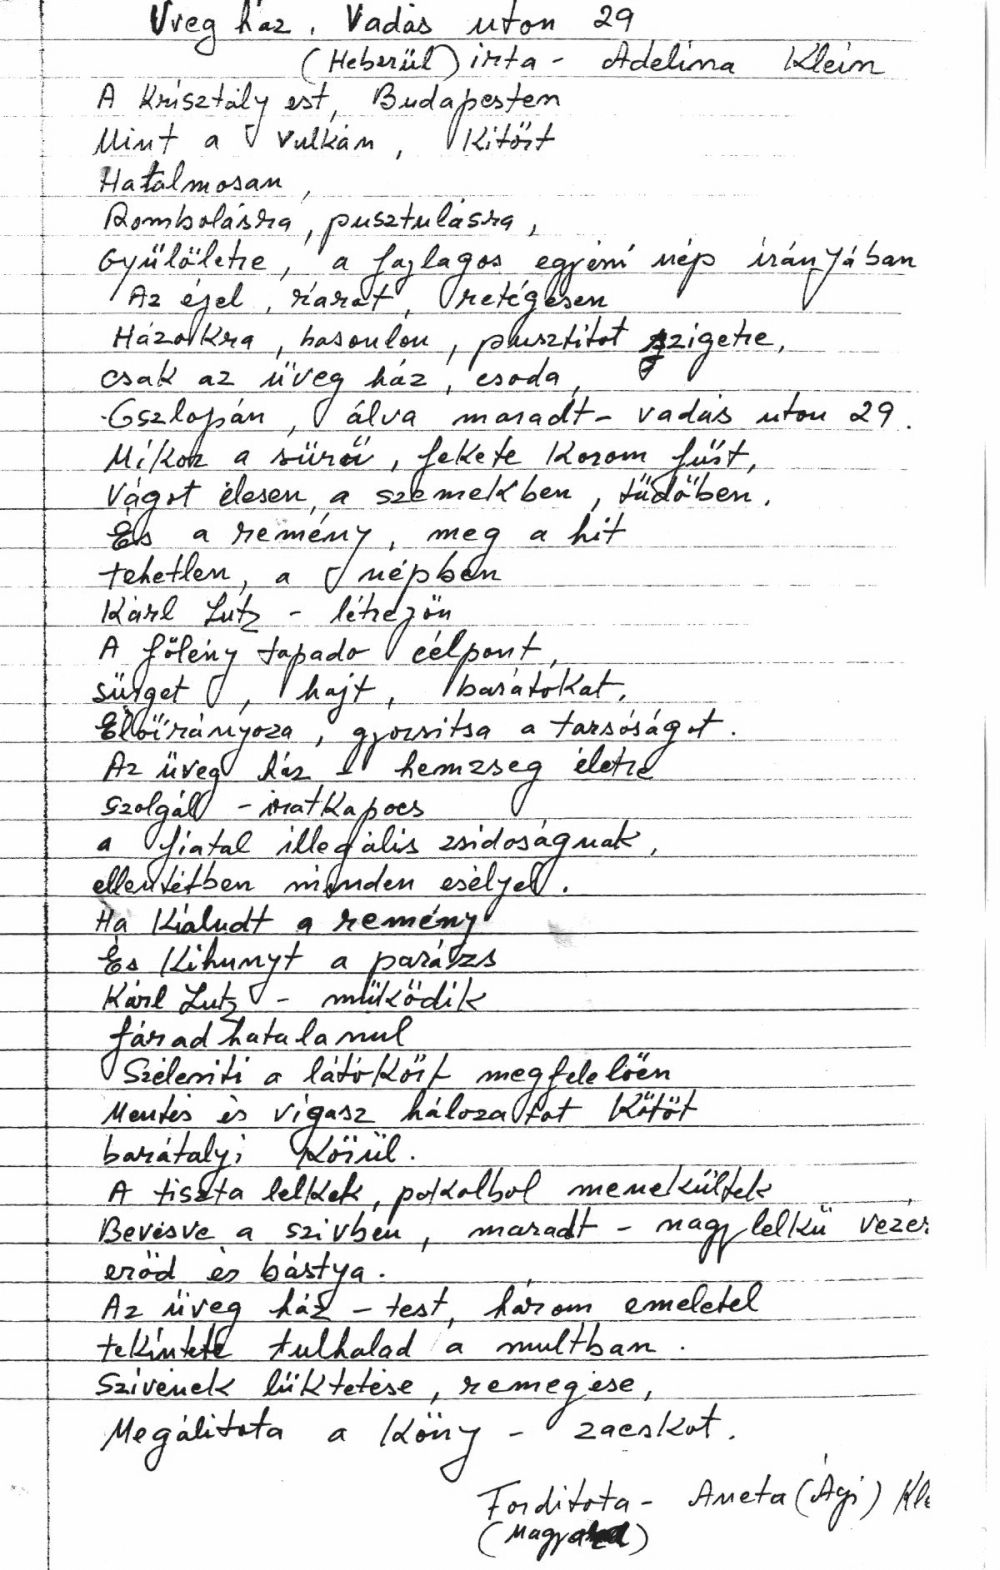 Üveg ház. Vadás uton 29
(Heberül) irta - Adelina Klein
A Krisztály est, Budapesten
Mint a vulkán, Kitört
Hatalmosan,
Rombolásra, pusztulásra,
Gyülöletre, a fajlagos egyéni nép irányában
Az éjel, riarat, retégesen
Házakra, hasonlón, pusztitot szigetre,
csak az üveg ház, csoda,
Oszlopán, álva maradt - vadás uton 29.
Mikor a sürü, fekete Korom füst,
Vágot élesen, a szemekben, tüdőben.
És a remény, meg a hit
tehetlen, a népben
Kárl Lutz - létrejön
A fölény tapado célpont,
sürget, hajt, barátokat,
Előirányoza, gyorsitsa a tarsóságot.
Az üveg ház - hemzseg életre
szolgál - iratkapocs
a fiatal illegális zsidoságnak,
ellentétben minden esélyel.
Ha Kialudt a remény
És Kihunyt a parázs
Kárl Lutz - müködik
fáradhatalanul
Széleniti a látókört megfelelöen
Mentés és vigasz hálozatot Kötöt
barátalyi Körül.
A tiszta lelkek, pokolbol menekültek
Bevésve a szivben, maradt - nagylelkü vezér
eröd és bástya.
Az üveg ház - test, három emeletel
tekintete tulhalad a multban.
Szivének lüktetése, remegése,
Megálitota a Köny - zacskot.
Forditota - Aneta (Ági) Kle
(Magyar